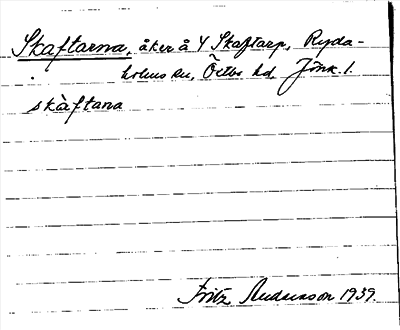 Skaftarna, åker å Y Skaftarp, Ryda-
holms sn, Östbo hd, Jönk. l.
skàftana
Fritz Andersson 1939.